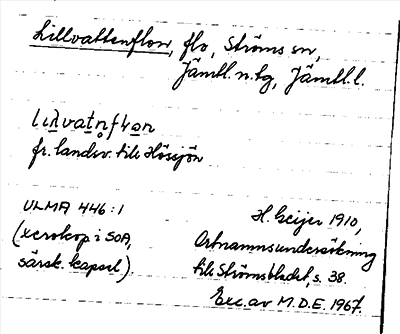 Lillvattenflon, flo, Ströms sn,
Jämtl. n. tg, Jämtl. l.
fr. landsv. till Hösjön
ULMA 446:1
(xerokop i SOA,
särsk. kapsel).
H. Geijer 1910,
Ortnamnsundersökning
till Strömsbladet, s. 38.
Exc. av M.D.E. 1967.